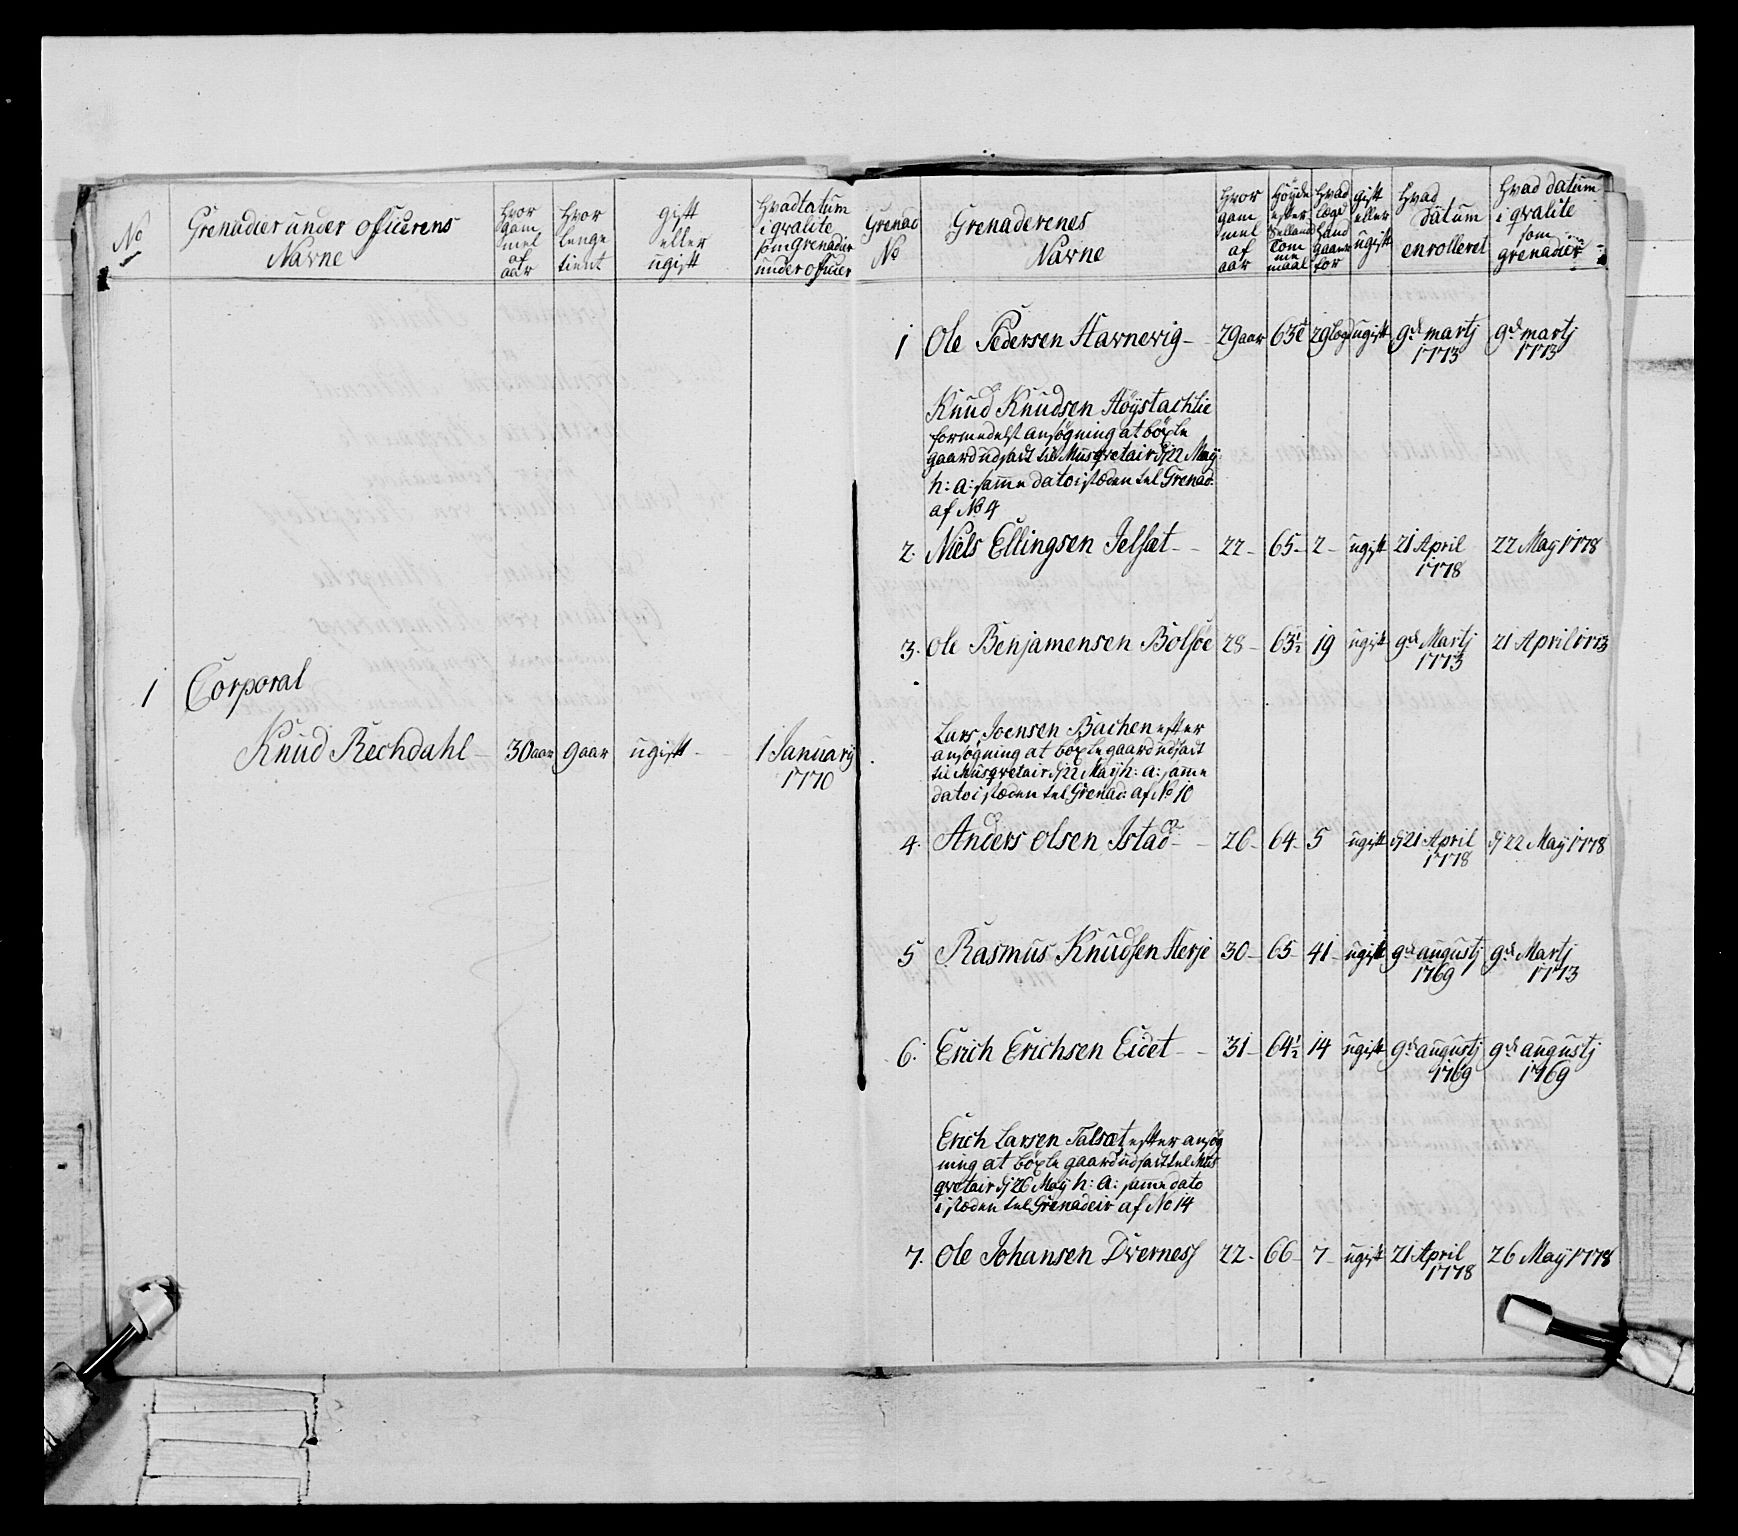 No
Grenadier under officerens
Navne
Hvor gammel af aar
Hvor lenge tient
gift eller ugift
Hvad tatum i qvalite som grenadir under officer
1 Corporal
Knud Rechdahl 30 aar 9 aar ugift 1 January 1770
Grenad No
Grenaderenes
Navne
Hvor gammel af aar
Höyde efter Sellands tomme maal
Hvad lægd hand gaaer for
gift eller ugift
Hvad Datum enrolleret
Hvad datum i qvalite som grenadier
1 Ole Pedersen Havnevig 29 aar 63 29 læg ugift 9de martj 1773 9de martj 1773
Knud Knudsen Höystachlie
formedelst ansøgning at böxle
gaard udsadt til Musqvetair dj 22 May
h: a: samme dato i stæden tel Grenad:
af No 4
2. Niels Ellingsen Jelsæt 22 65 2 ugift 21 April 1778 22 May 1778
3. Ole Benjamensen Bolsöe 28 63½ 19 ugift 9de Martj 1773 21 April 1773
Lars Joensen Bachen efter
ansøgning at böxle gaard udsadt
til Musqvetair dj 22 May h: a: same
dato i stæden tel Grenad: af No 10
4. Anders Olsen Istad 26 64 5 ugift dj 21 April 1778 dj 22 May 1778
5 Rasmus Knudsen Herje 30 65 41 ugift 9de augustj 1769 9de Martj 1773
6. Erich Erichsen Eidet 31 64½ 14 ugift 9de augustj 1769 9de augustj 1769
Erich Larsen Talsæt efter ansøg
ning at böxle gaard udsadt tel Mus
qvetair dj 26 May h: a: same dato
i stæden tel Grenadeir af No 14
7. Ole Johansen Dvernes 22 66 7 ugift 21 April 1778 26 May 1778